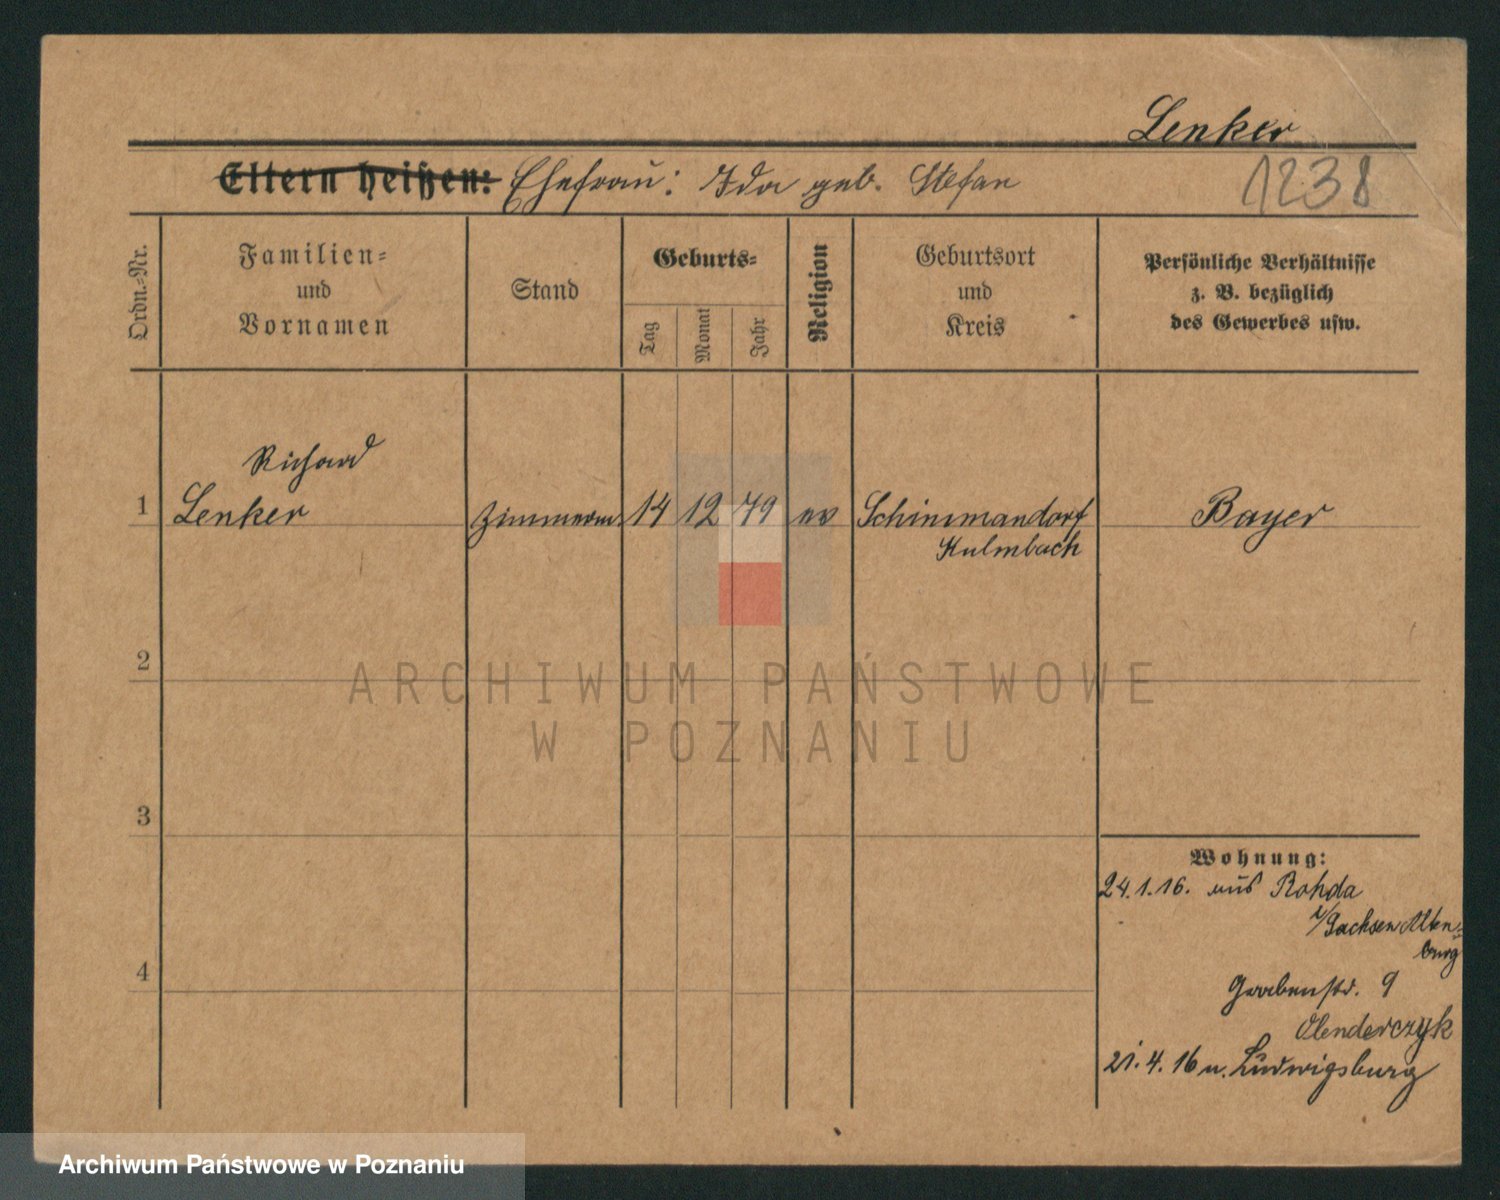 Lenker
Eltern heißen: Ehefrau: Ida geb. Stefan
1238
Ordn.-Nr.
Familien-
und
Vornamen
Stand
Geburts-
Tag
Monat
Jahr
Religion
Geburtsort
und
Kreis
Persönliche Verhältnisse
z. B. bezüglich
des Gewerbes usw.
Richard
1 Lenker Zimmerm 14 12 79 ev Schimmandorf Bayer
Kulmbach
2
ARCHIWUM PAŃSTWOWE
W POZNANIU
3
Wohnung:
24.1.16. aus Rohda
i/Sachsen Alten-
burg
4
Grabenstr. 9
Olenderczyk
21.4.16 n. Ludwigsburg
Archiwum Państwowe w Poznaniu